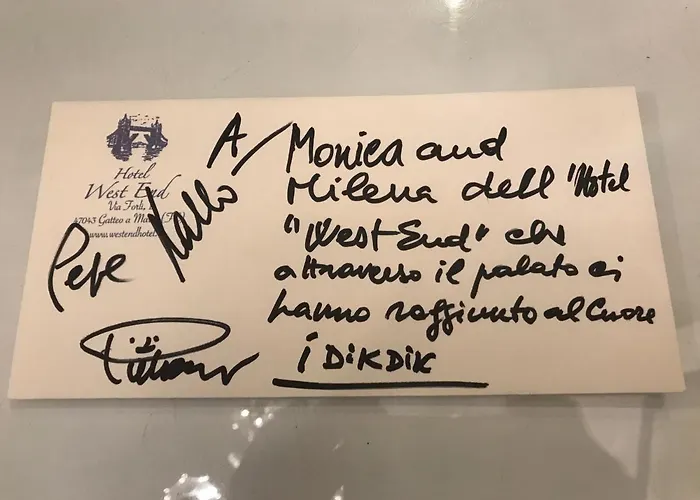 Hotel
West End
Via Forlì,
47043 Gatteo a Mare (F
www.westendhotel.
Pepe
A/Monica and
Milena dell'Hotel
"West End" che
attraverso il palato ci
hanno raggiunto al Cuore
i DiKDiK